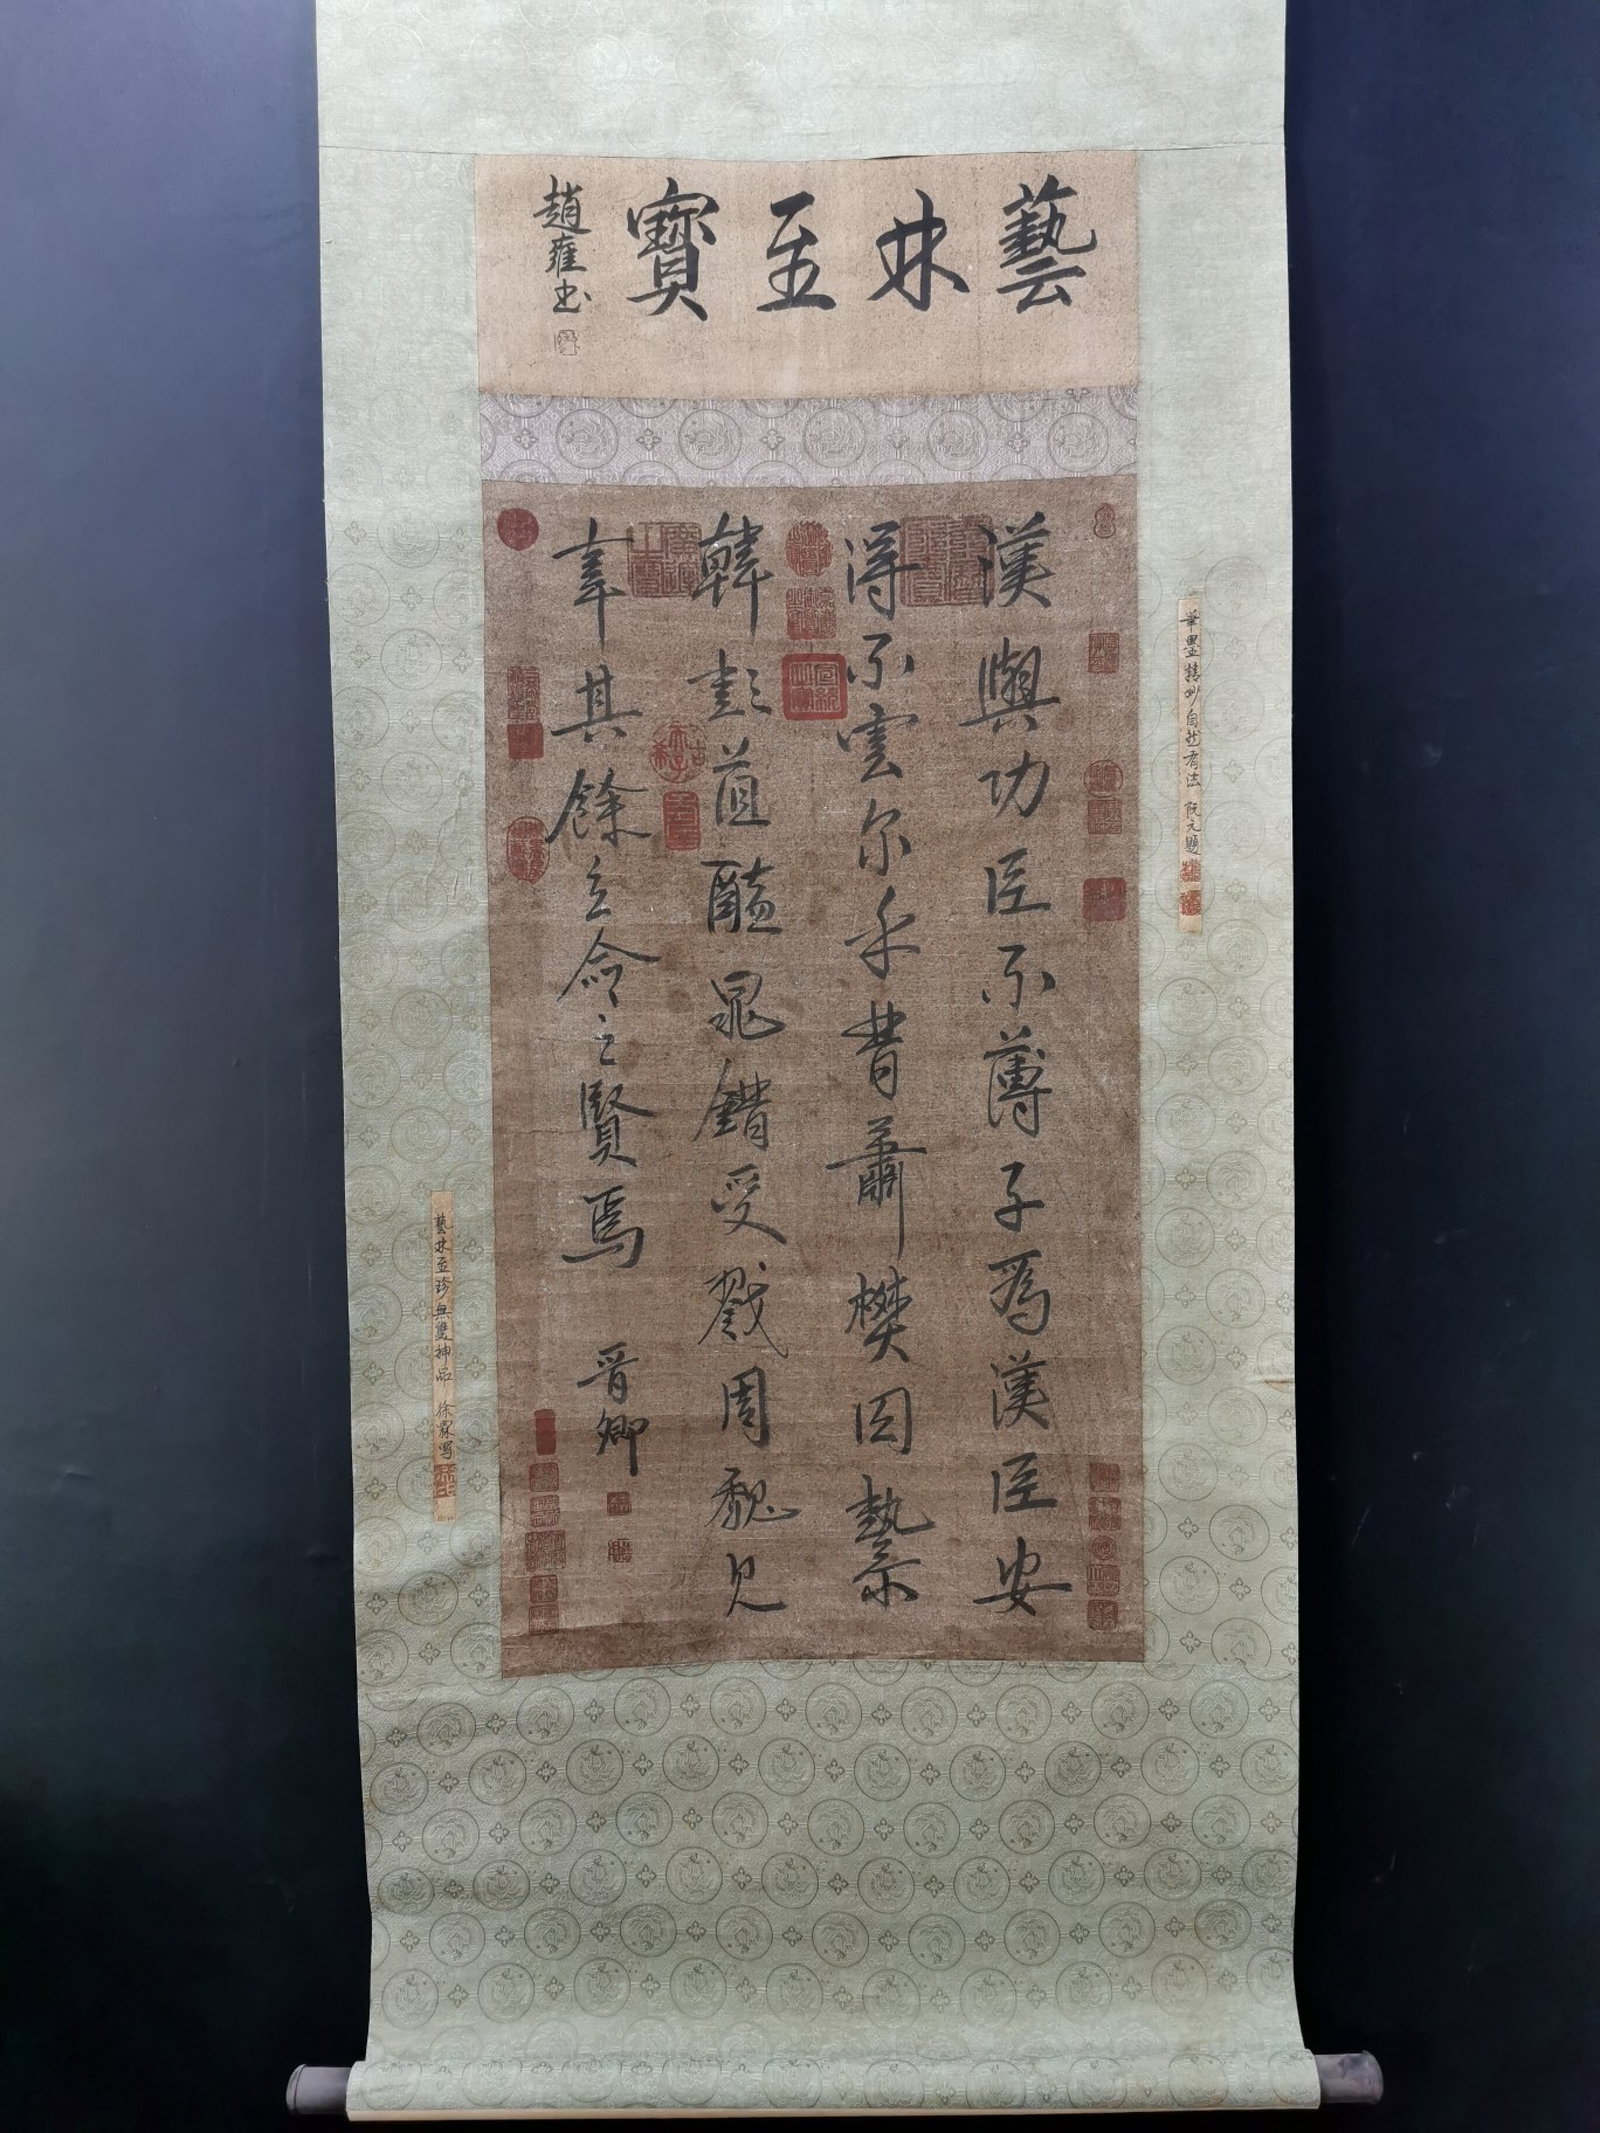 藝林至寶
趙雍书
漢與功臣不薄子爲漢臣安
得不雲尔乎昔蕭樊囚縶
韓彭菹醢晁錯受戮周魏見
辜其餘立命之賢焉
晉卿
筆墨精妙自然有法 阮元題
藝林至珍無雙神品 徐霖寫